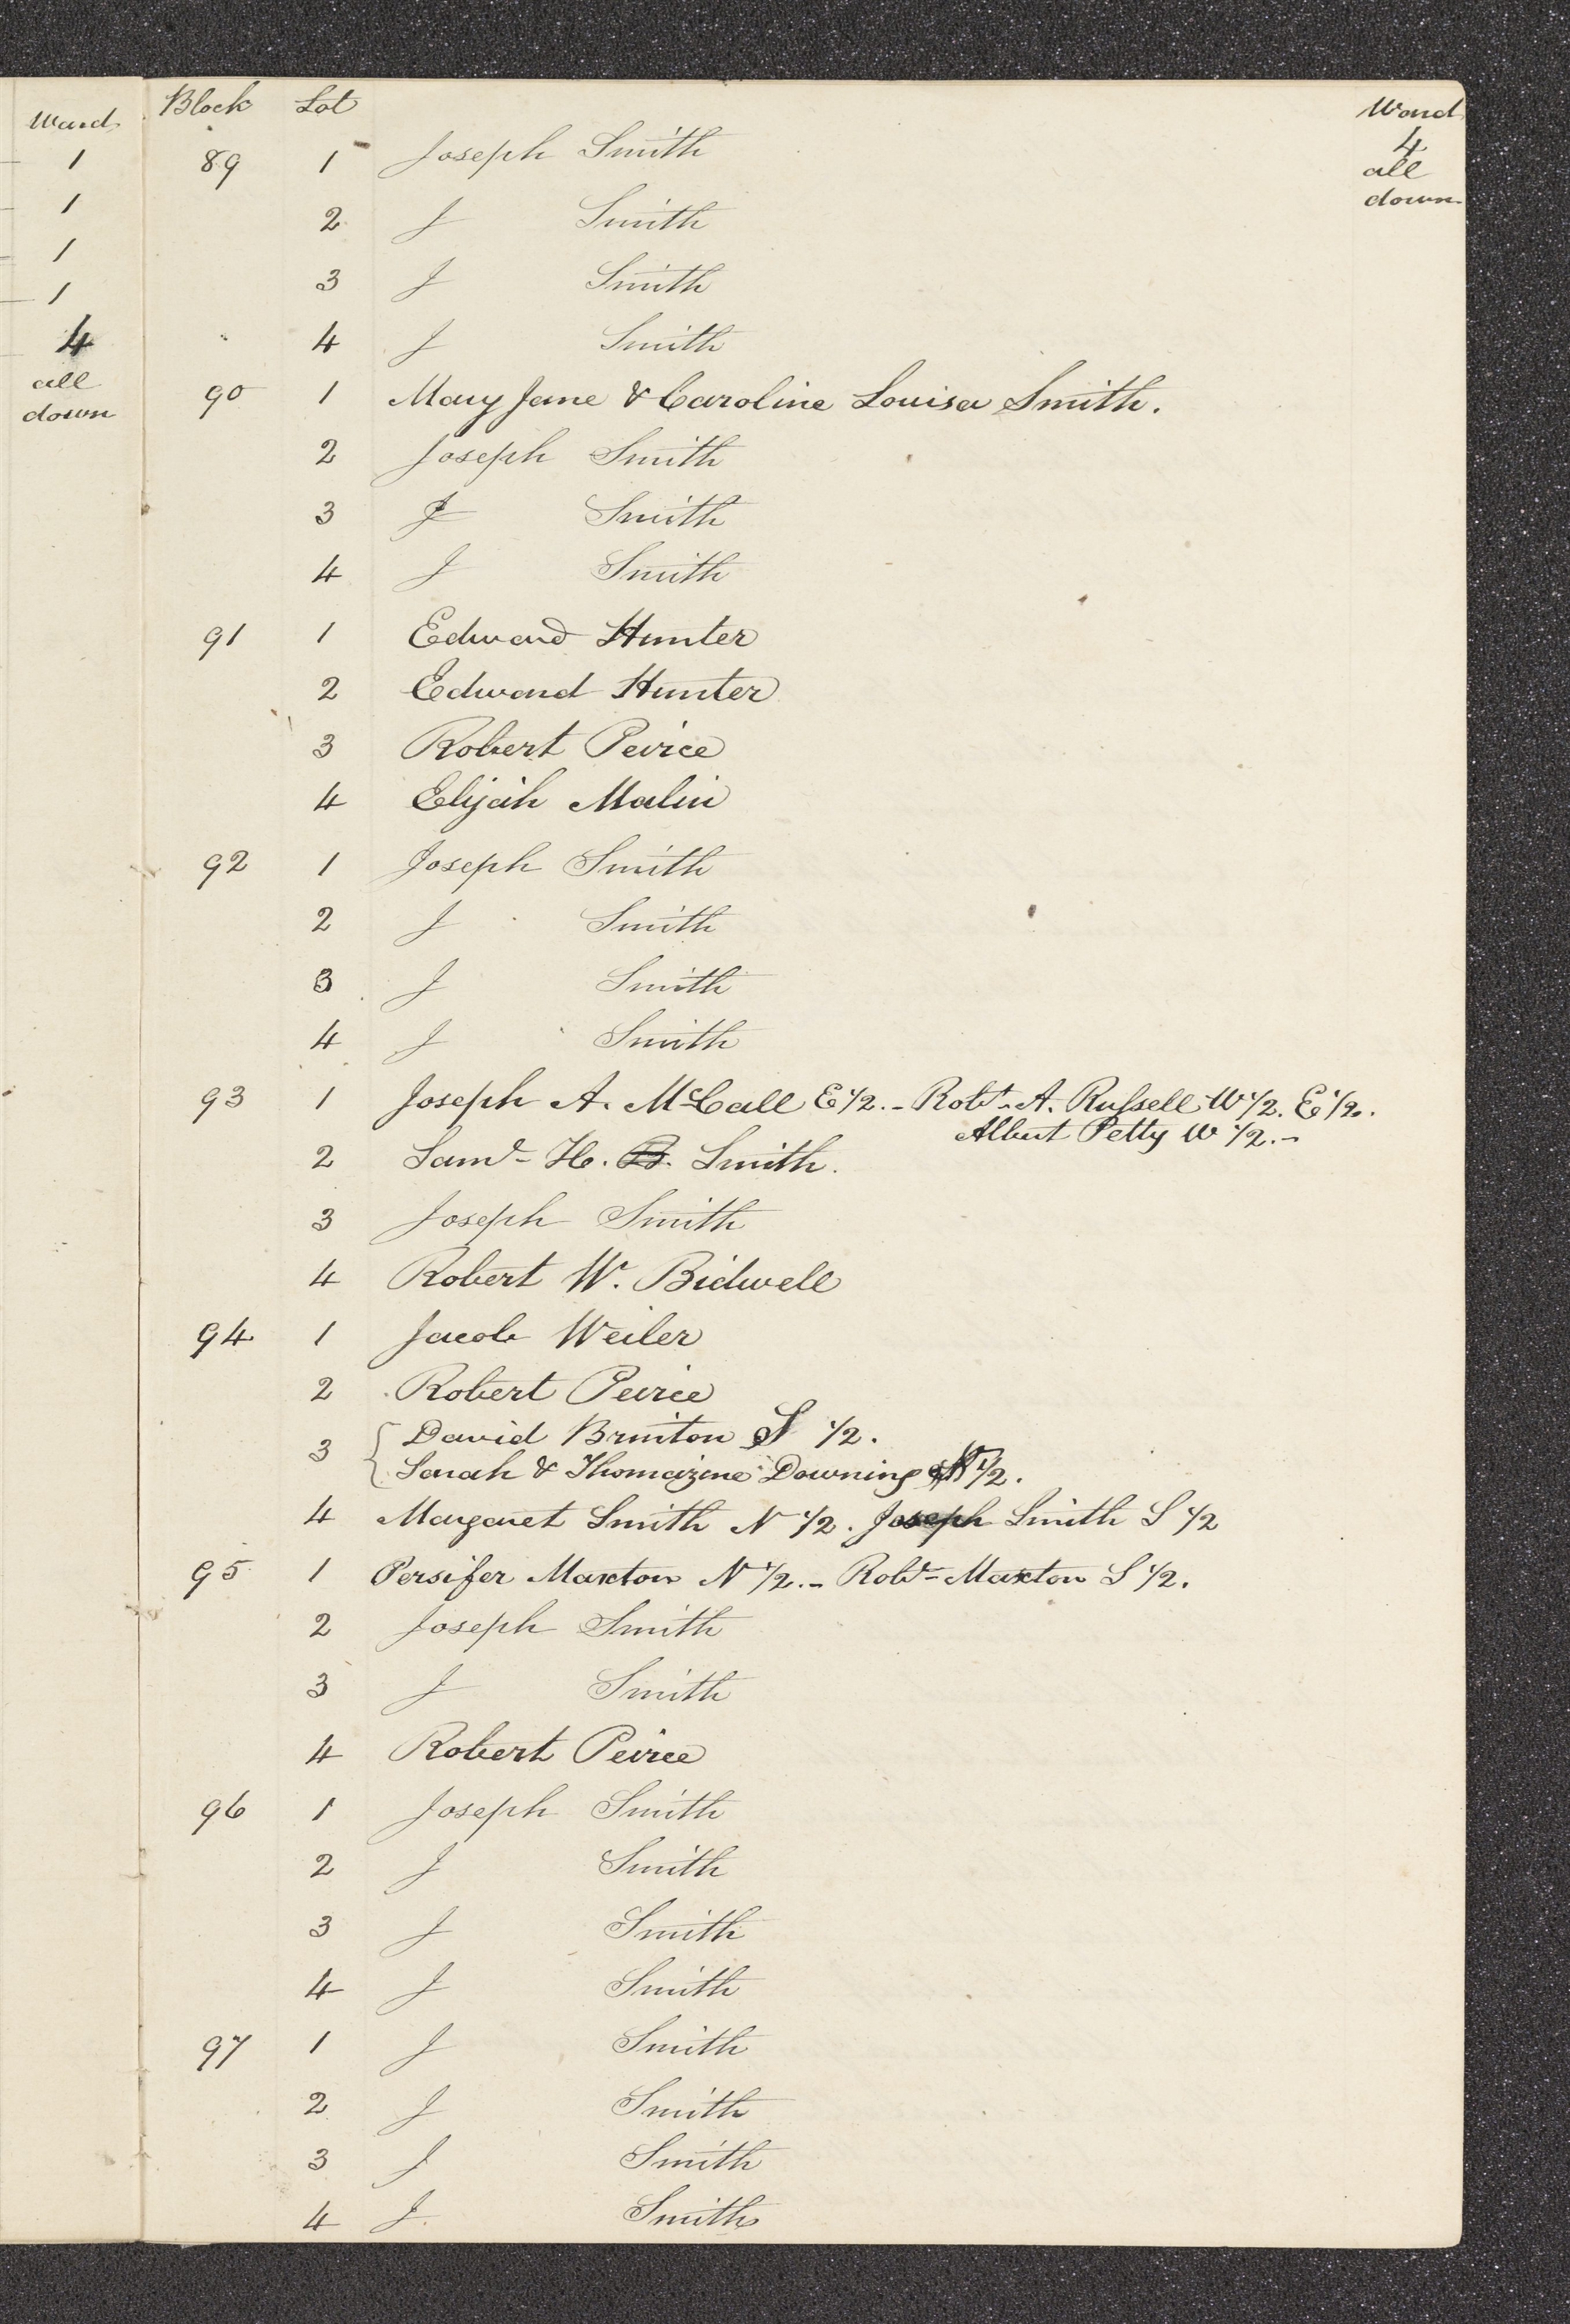 Ward
1
1
1
1
4
all
down
Block Lot Ward
89 1 Joseph Smith 4
all
down
2 J Smith
3 J Smith
4 J Smith
90 1 Mary Jane & Caroline Louisa Smith.
2 Joseph Smith
3 J Smith
4 J Smith
91 1 Edward Hunter
2 Edward Hunter
3 Robert Peirce
4 Elijah Malin
92 1 Joseph Smith
2 J Smith
3 J Smith
4 J Smith
93 1 Joseph A. McCall E 1/2. - Robt. A. Russell W 1/2. E 1/2.
Albert Petty W 1/2. -
2 Saml H. B. Smith.
3 Joseph Smith
4 Robert W. Bidwell
94 1 Jacob Weiler
2 Robert Peirce
3 { David Brinton S 1/2.
Sarah & Thomazine Downing N 1/2.
4 Margaret Smith N 1/2. Joseph Smith S 1/2
95 1 Persifer Maxton N 1/2. - Robt Maxton S 1/2.
2 Joseph Smith
3 J Smith
4 Robert Peirce
96 1 Joseph Smith
2 J Smith
3 J Smith
4 J Smith
97 1 J Smith
2 J Smith
3 J Smith
4 J. Smith